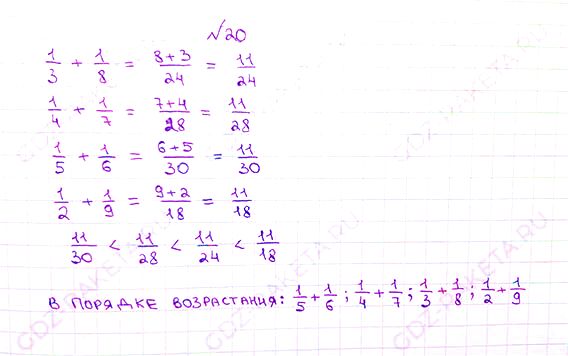 №20
1/3 + 1/8 = 8+3/24 = 11/24
1/4 + 1/7 = 7+4/28 = 11/28
1/5 + 1/6 = 6+5/30 = 11/30
1/2 + 1/9 = 9+2/18 = 11/18
11/30 < 11/28 < 11/24 < 11/18
В ПОРЯДКЕ ВОЗРАСТАНИЯ: 1/5 + 1/6 ; 1/4 + 1/7 ; 1/3 + 1/8 ; 1/2 + 1/9
GDZ-RAKETA.RU